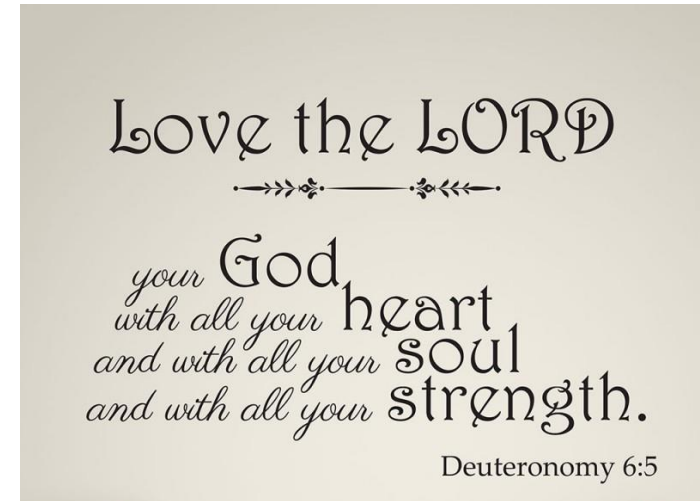 Love the LORD
your God,
with all your heart
and with all your soul
and with all your strength.
Deuteronomy 6:5